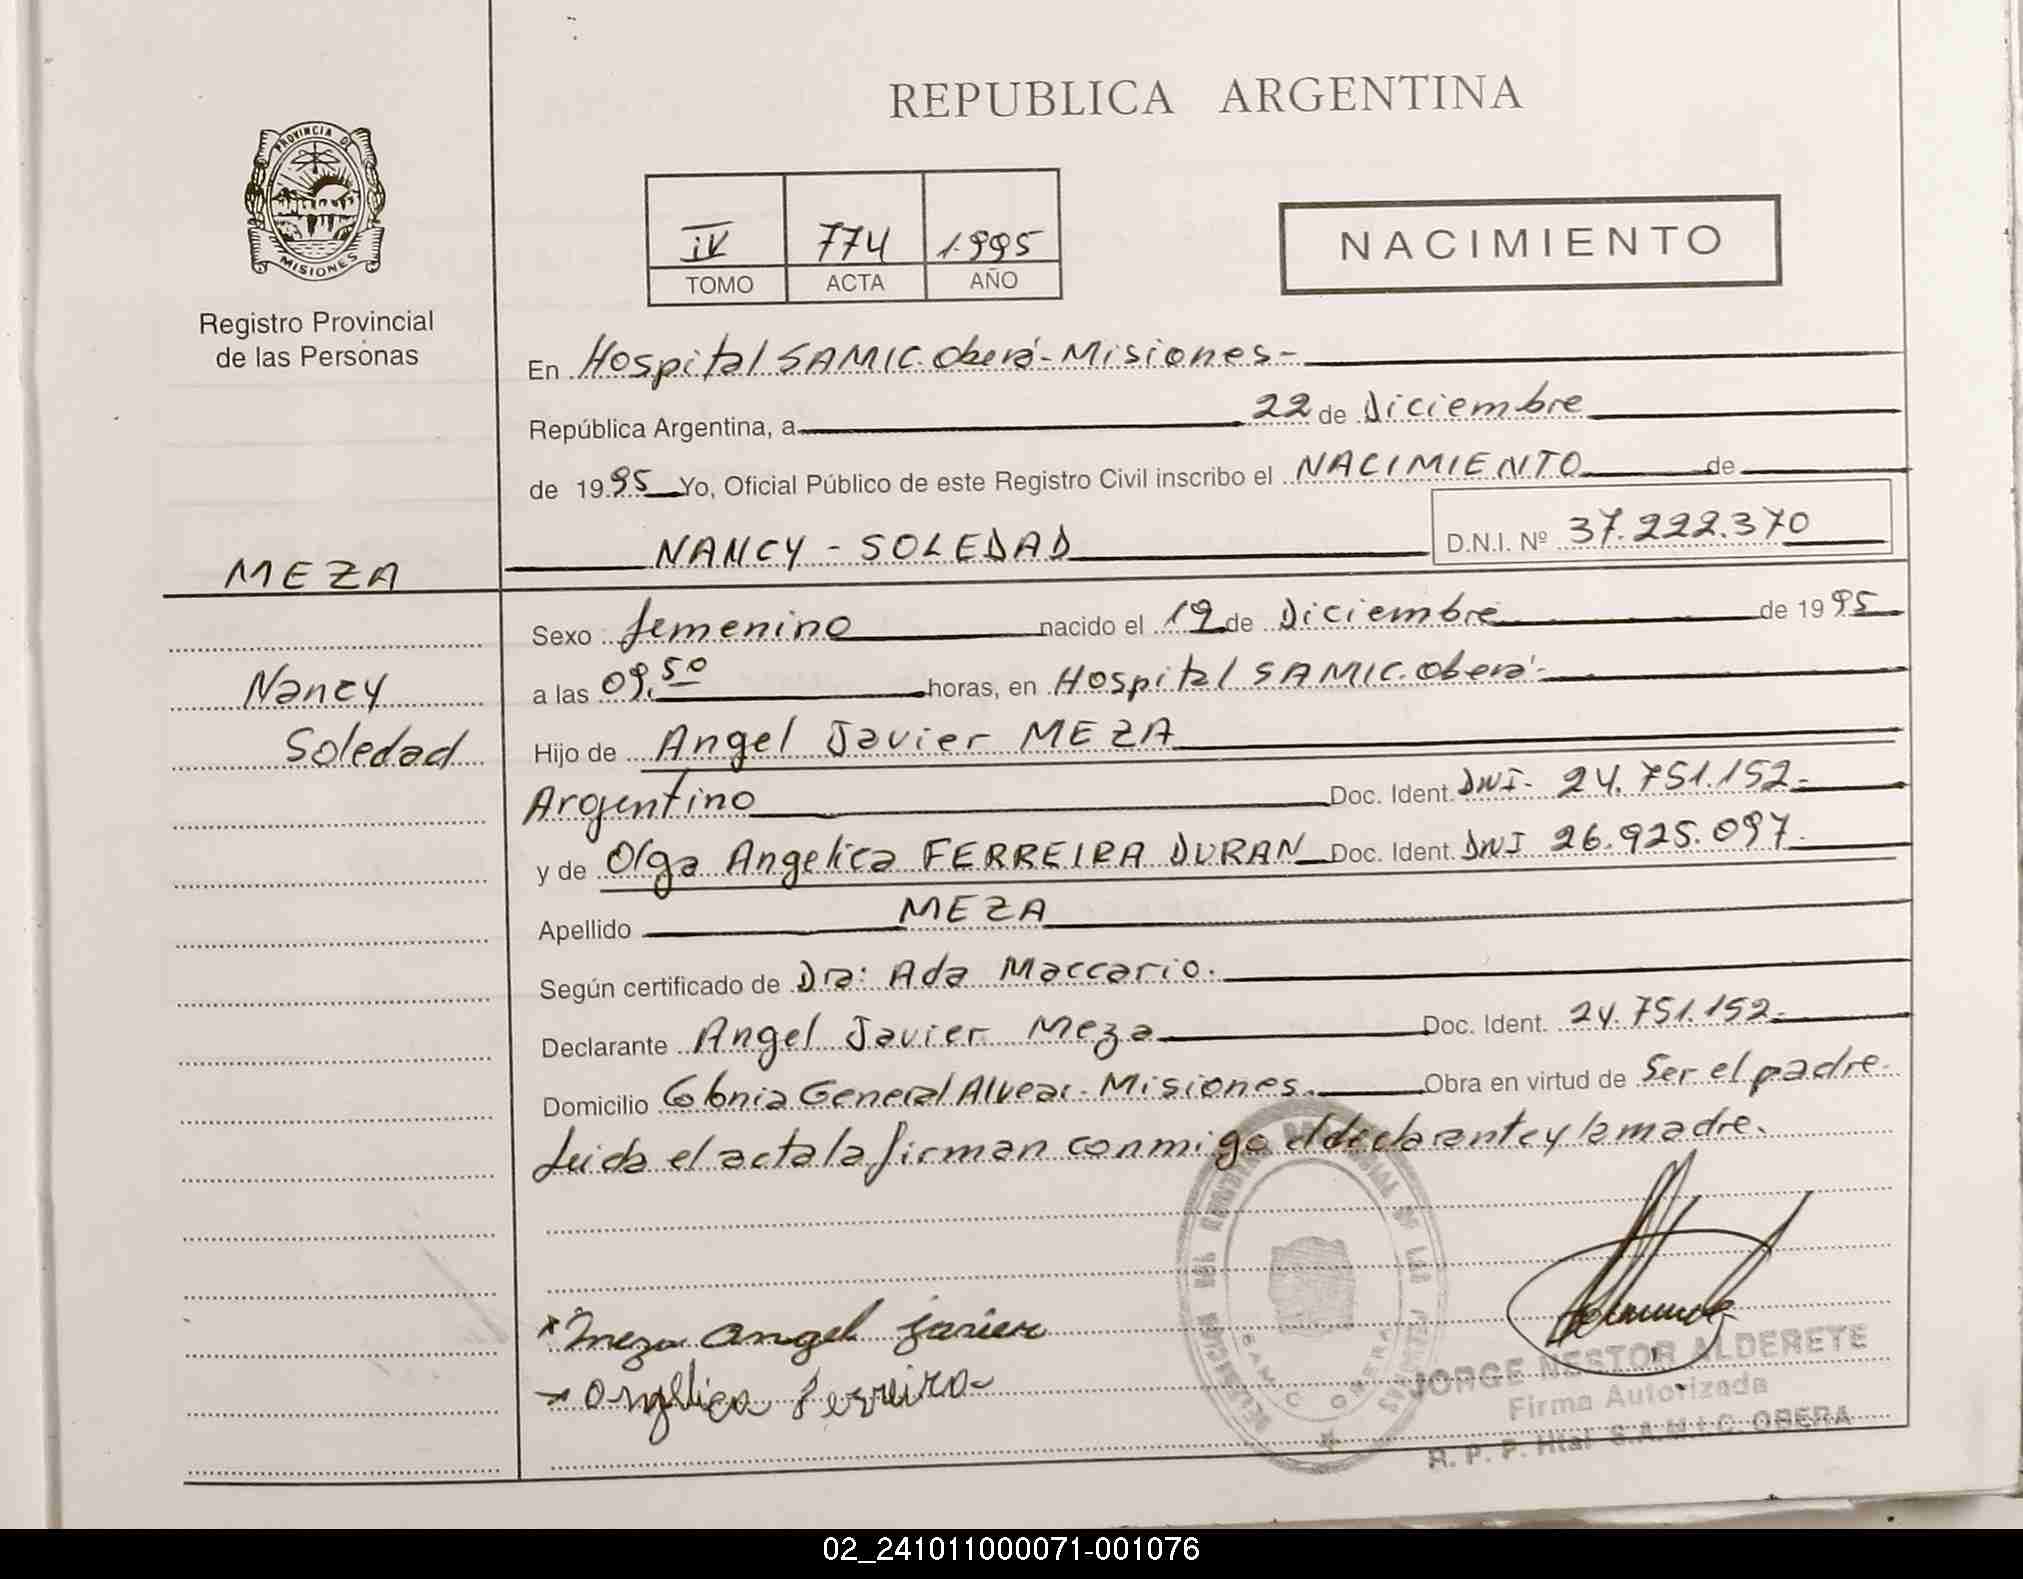 REPUBLICA ARGENTINA
PROVINCIA DE
MISIONES
Registro Provincial
de las Personas
IV 774 1.995
TOMO ACTA AÑO
NACIMIENTO
En Hospital SAMIC. Oberá - Misiones -
República Argentina, a 22 de Diciembre
de 1995 Yo, Oficial Público de este Registro Civil inscribo el NACIMIENTO de
MEZA
NANCY - SOLEDAD D.N.I. Nº 37.222.370
Sexo femenino nacido el 19 de Diciembre de 1995
Nancy
a las 09,50 horas, en Hospital SAMIC. Oberá -
Soledad
Hijo de Angel Javier MEZA
Argentino Doc. Ident. DNI - 24.751.152 -
y de Olga Angelica FERREIRA DURAN Doc. Ident. DNI 26.925.097.
Apellido MEZA
Según certificado de Dra: Ada Maccario.
Declarante Angel Javier Meza Doc. Ident. 24.751.152 -
Domicilio Colonia General Alvear - Misiones. Obra en virtud de Ser el padre -
Leida el acta la firman conmigo el declarante y la madre.
Meza Angel javier
Angelica Ferreira
JORGE NESTOR ALDERETE
Firma Autorizada
R. P. P. Htal S.A.M.I.C. OBERA
02_241011000071-001076